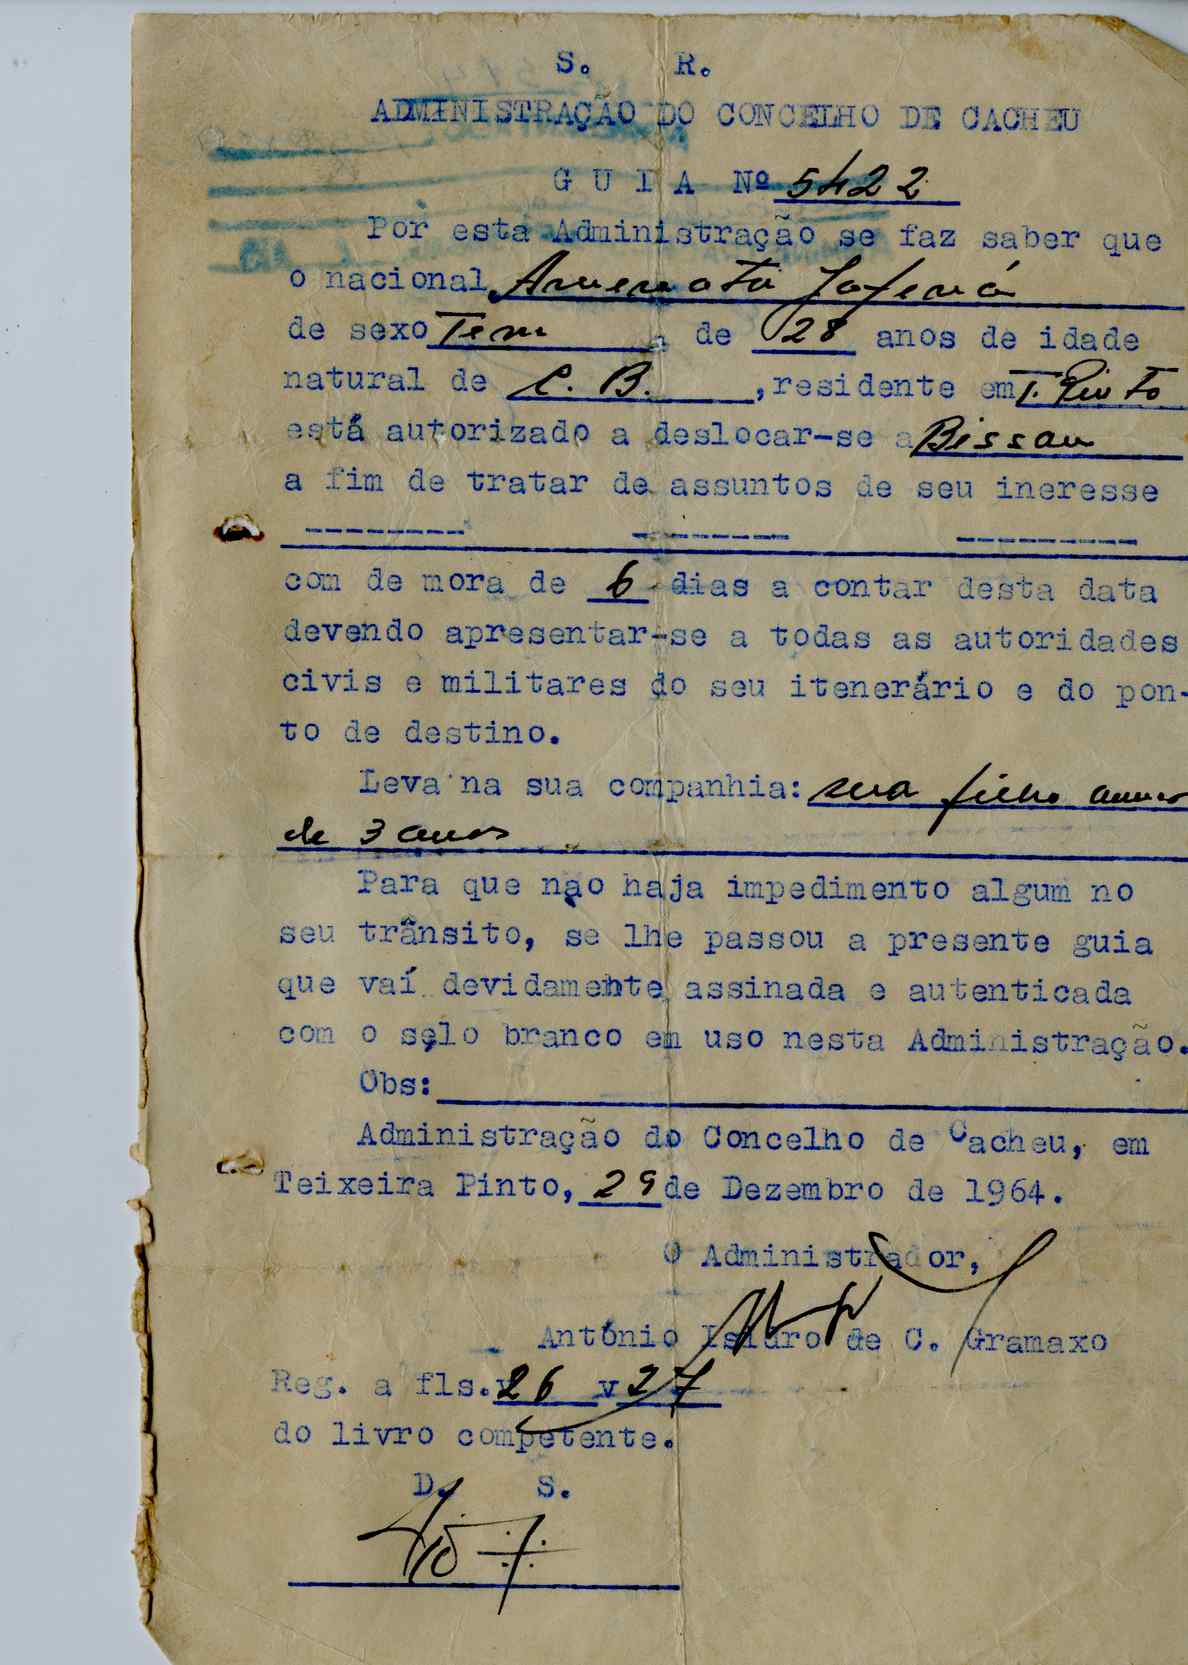 S. R.
ADMINISTRAÇÃO DO CONCELHO DE CACHEU
G U I A Nº 5422
Por esta Administração se faz saber que
o nacional
de sexo Fem de 28 anos de idade
natural de C. B. , residente em T. Pinto
está autorizado a deslocar-se a Bissau
a fim de tratar de assuntos de seu ineresse
--------- --------- ---------
com de mora de 6 dias a contar desta data
devendo apresentar-se a todas as autoridades
civis e militares do seu itenerário e do pon-
to de destino.
Leva na sua companhia: sua filha
de 3 anos
Para que não haja impedimento algum no
seu trânsito, se lhe passou a presente guia
que vaí devidamente assinada e autenticada
com o selo branco em uso nesta Administração.
Obs:
Administração do Concelho de Cacheu, em
Teixeira Pinto, 29 de Dezembro de 1964.
O Administrador,
António Isidro de C. Gramaxo
Reg. a fls. 26 v 27
do livro competente.
D. S.